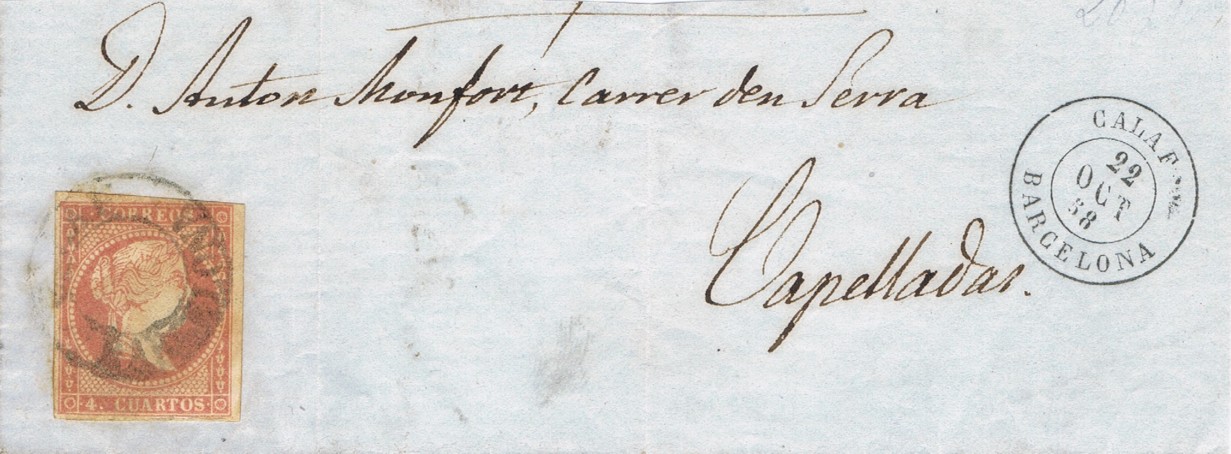 D. Anton Monfort, Carrer den Serra
Capelladas.
CORREOS
4. CUARTOS
22
OCT
58
BARCELONA